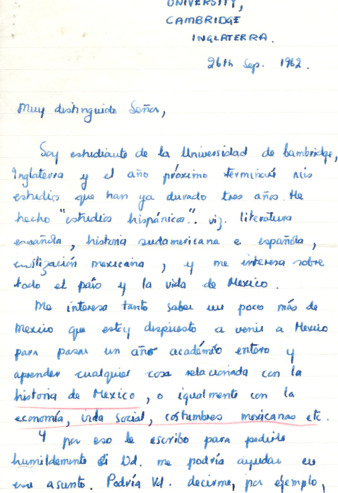 UNIVERSITY,
CAMBRIDGE
INGLATERRA.
26th Sep. 1962.
Muy distinguido Señor,
Soy estudiante de la Universidad de Cambridge,
Inglaterra y el año próximo terminaré mis
estudios que han ya durado tres años. He
hecho "estudios hispánicos". viz. literatura
española, historia sudamericana e española,
civilización mexicana, y me interesa sobre
todo el país y la vida de Mexico.
Me interesa tanto saber un poco más de
Mexico que estoy dispuesto a venir a Mexico
para pasar un año académio entero y
aprender cualquier cosa relacionada con la
historia de Mexico, o igualmente con la
economía, vida social, costumbres mexicanas etc.
Y por eso le escribo para pedirle
humildemente si Ud. me podría ayudar en
ese asunto. Podría Vd. decirme, por ejemplo,